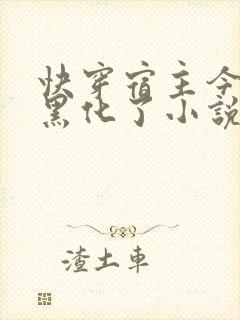 快穿宿主今
黑化了小說
渣土車